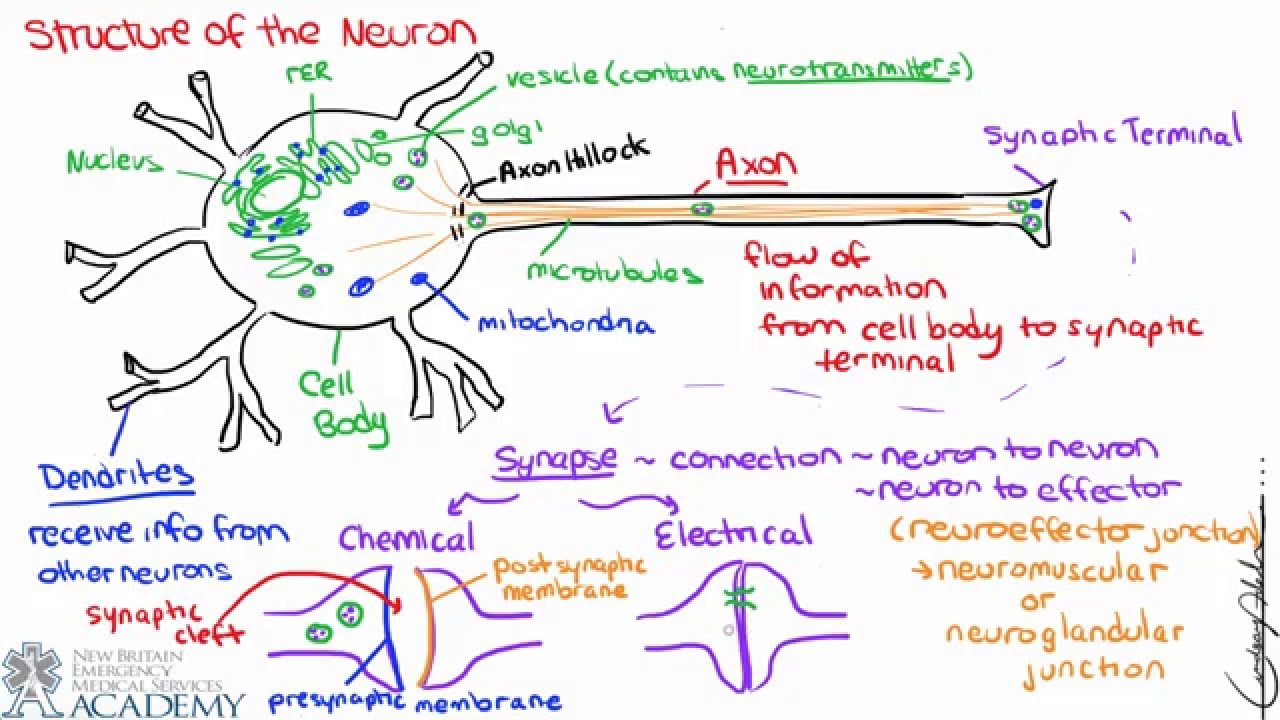 Structure of the Neuron
rER
vesicle (contains neurotransmitters)
golgi
Nucleus
Axon Hillock
Axon
Synaptic Terminal
microtubules
mitochondria
flow of
information
from cell body to synaptic
terminal
Cell
Body
Dendrites
receive info from
other neurons
Synapse ~ connection ~ neuron to neuron
~neuron to effector
(neuroeffector junction)
→neuromuscular
or
neuroglandular
junction
Chemical
Electrical
post synaptic
membrane
synaptic
cleft
presynaptic membrane
NEW BRITAIN
EMERGENCY
MEDICAL SERVICES
ACADEMY